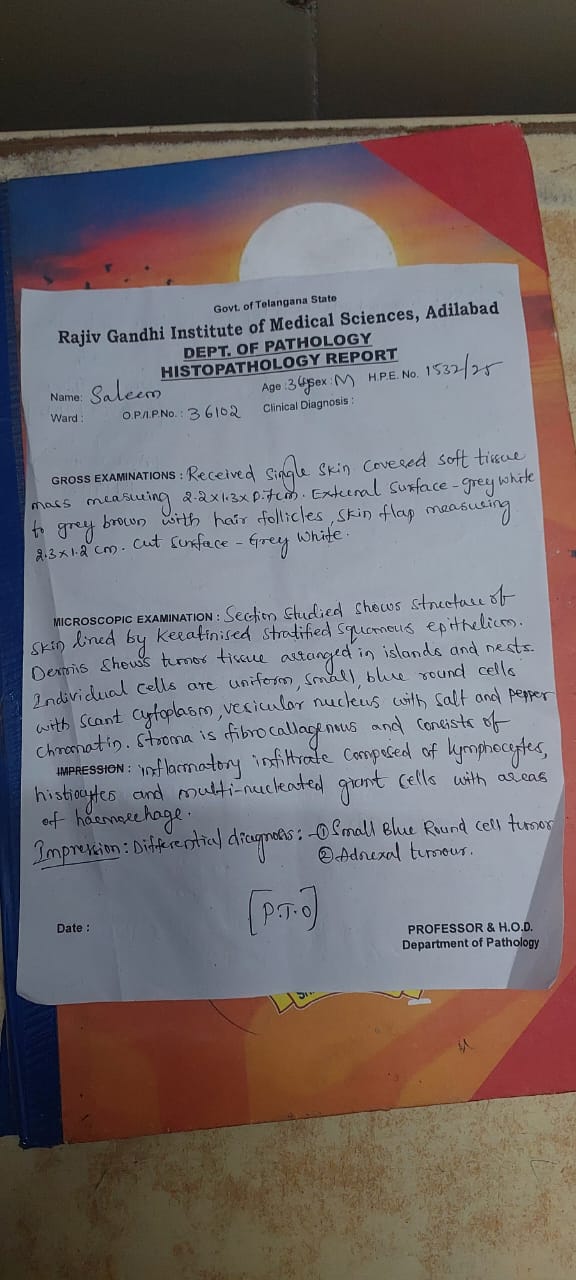 Govt. of Telangana State
Rajiv Gandhi Institute of Medical Sciences, Adilabad
DEPT. OF PATHOLOGY
HISTOPATHOLOGY REPORT
Name: Saleem Age : 34 Sex : M H.P.E. No. 1532/25
Ward : O.P/I.P No. : 36102 Clinical Diagnosis :
GROSS EXAMINATIONS : Received Single Skin Covered soft tissue
mass measuring 2.2x1.3x0.7cm. External Surface - grey white
to grey brown with hair follicles, skin flap measuring
2.3x1.2 cm. Cut Surface - Grey White.
MICROSCOPIC EXAMINATION : Section studied shows structure of
skin lined by keratinised stratified squamous epithelium.
Dermis shows tumor tissue arranged in islands and nests.
Individual cells are uniform, small, blue round cells
with scant cytoplasm, vesicular nucleus with salt and pepper
chromatin. Stroma is fibrocollagenous and consists of
IMPRESSION : inflammatory infiltrate composed of lymphocytes,
histiocytes and multi-nucleated giant cells with areas
of haemorrhage.
Impression : Differential diagnosis : - ① Small Blue Round cell tumor
② Adnexal tumour.
[P.T.O]
Date :
PROFESSOR & H.O.D.
Department of Pathology